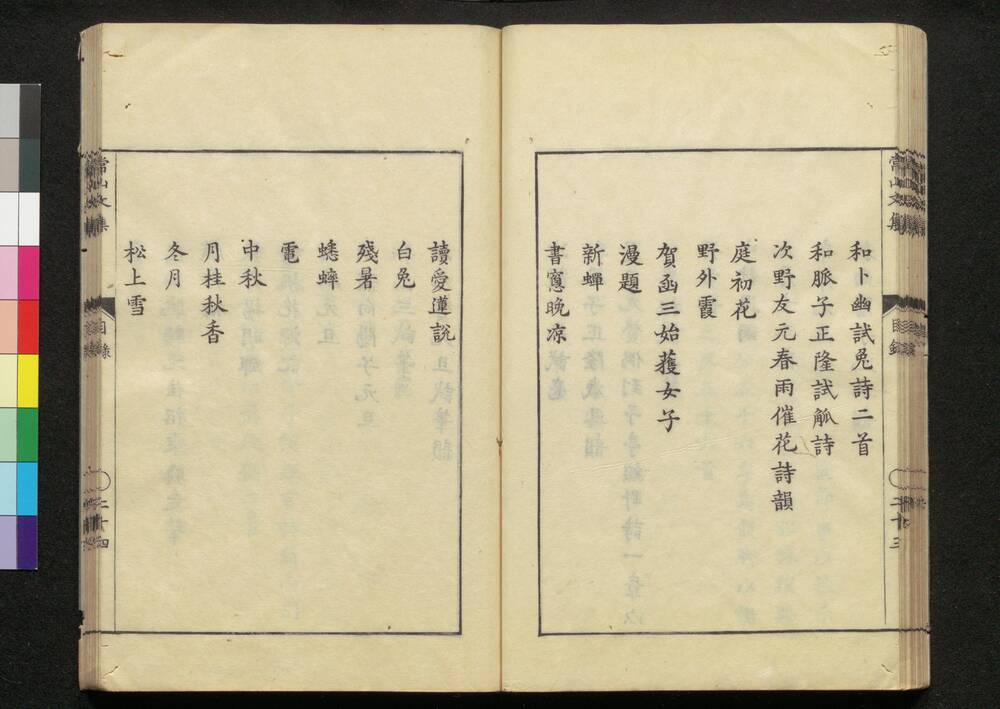 和卜幽試兔詩二首
和脈子正隆試觚詩
次野友元春雨催花詩韻
庭初花
野外霞
賀函三始獲女子
漫題
新蟬
書窓晚凉
常山文集
目録
二十三
讀愛蓮說
白兔
殘暑
蟋蟀
電
中秋
月桂秋香
冬月
松上雪
常山文集
目録
二十四